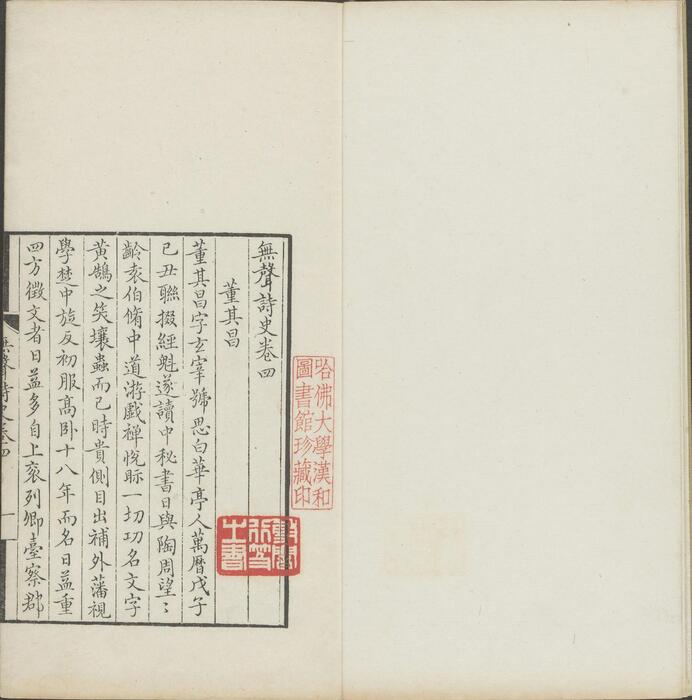 無聲詩史卷四
董其昌
董其昌字玄宰號思白華亭人萬曆戊子
己丑聯掇經魁遂讀中秘書日與陶周望〻
齡袁伯脩中道游戲禅悅眎一切功名文字
黃鵠之笑壤蟲而已時貴側目出補外藩視
學楚中旋反初服高卧十八年而名日益重
四方徵文者日益多自上衮列卿臺察郡
無聲詩史卷四
一
哈佛大學漢和
圖書館珍藏印